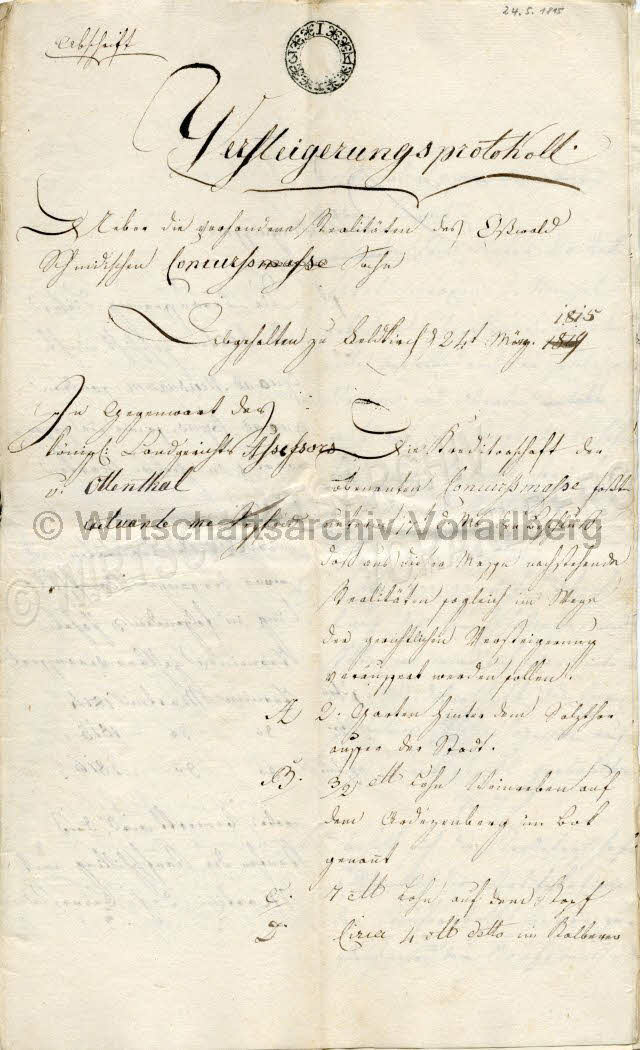 24. 5. 1815
Abschrift
Versteigerungsprotokoll.
Ueber die vorhandene Realitäten des Oswald
Schmidischen Concurssmasse Sache
1815
Abgehalten zu Feldkirch d 24t März. 1819
In Gegenwart des
Königl: Landgerichts Assessors
v: Ottenthal
actuante me
Die Kreditorschaft der
obenannten Concurssmasse faßte
unterm
daß aus dieser Massa nachstehende
Realitäten sogleich im Wege
der gerichtlichen Versteigerung
veräussert werden sollen.
A 2. Garten hinter dem Salzthor
ausser der Stadt.
B. 32 Lohn Weinreben auf
dem Ardezenberg im Bok
genannt
C. 7 Lohn auf dem Kopf
D. Circa 4 detto im
© Wirtschaftsarchiv Vorarlberg